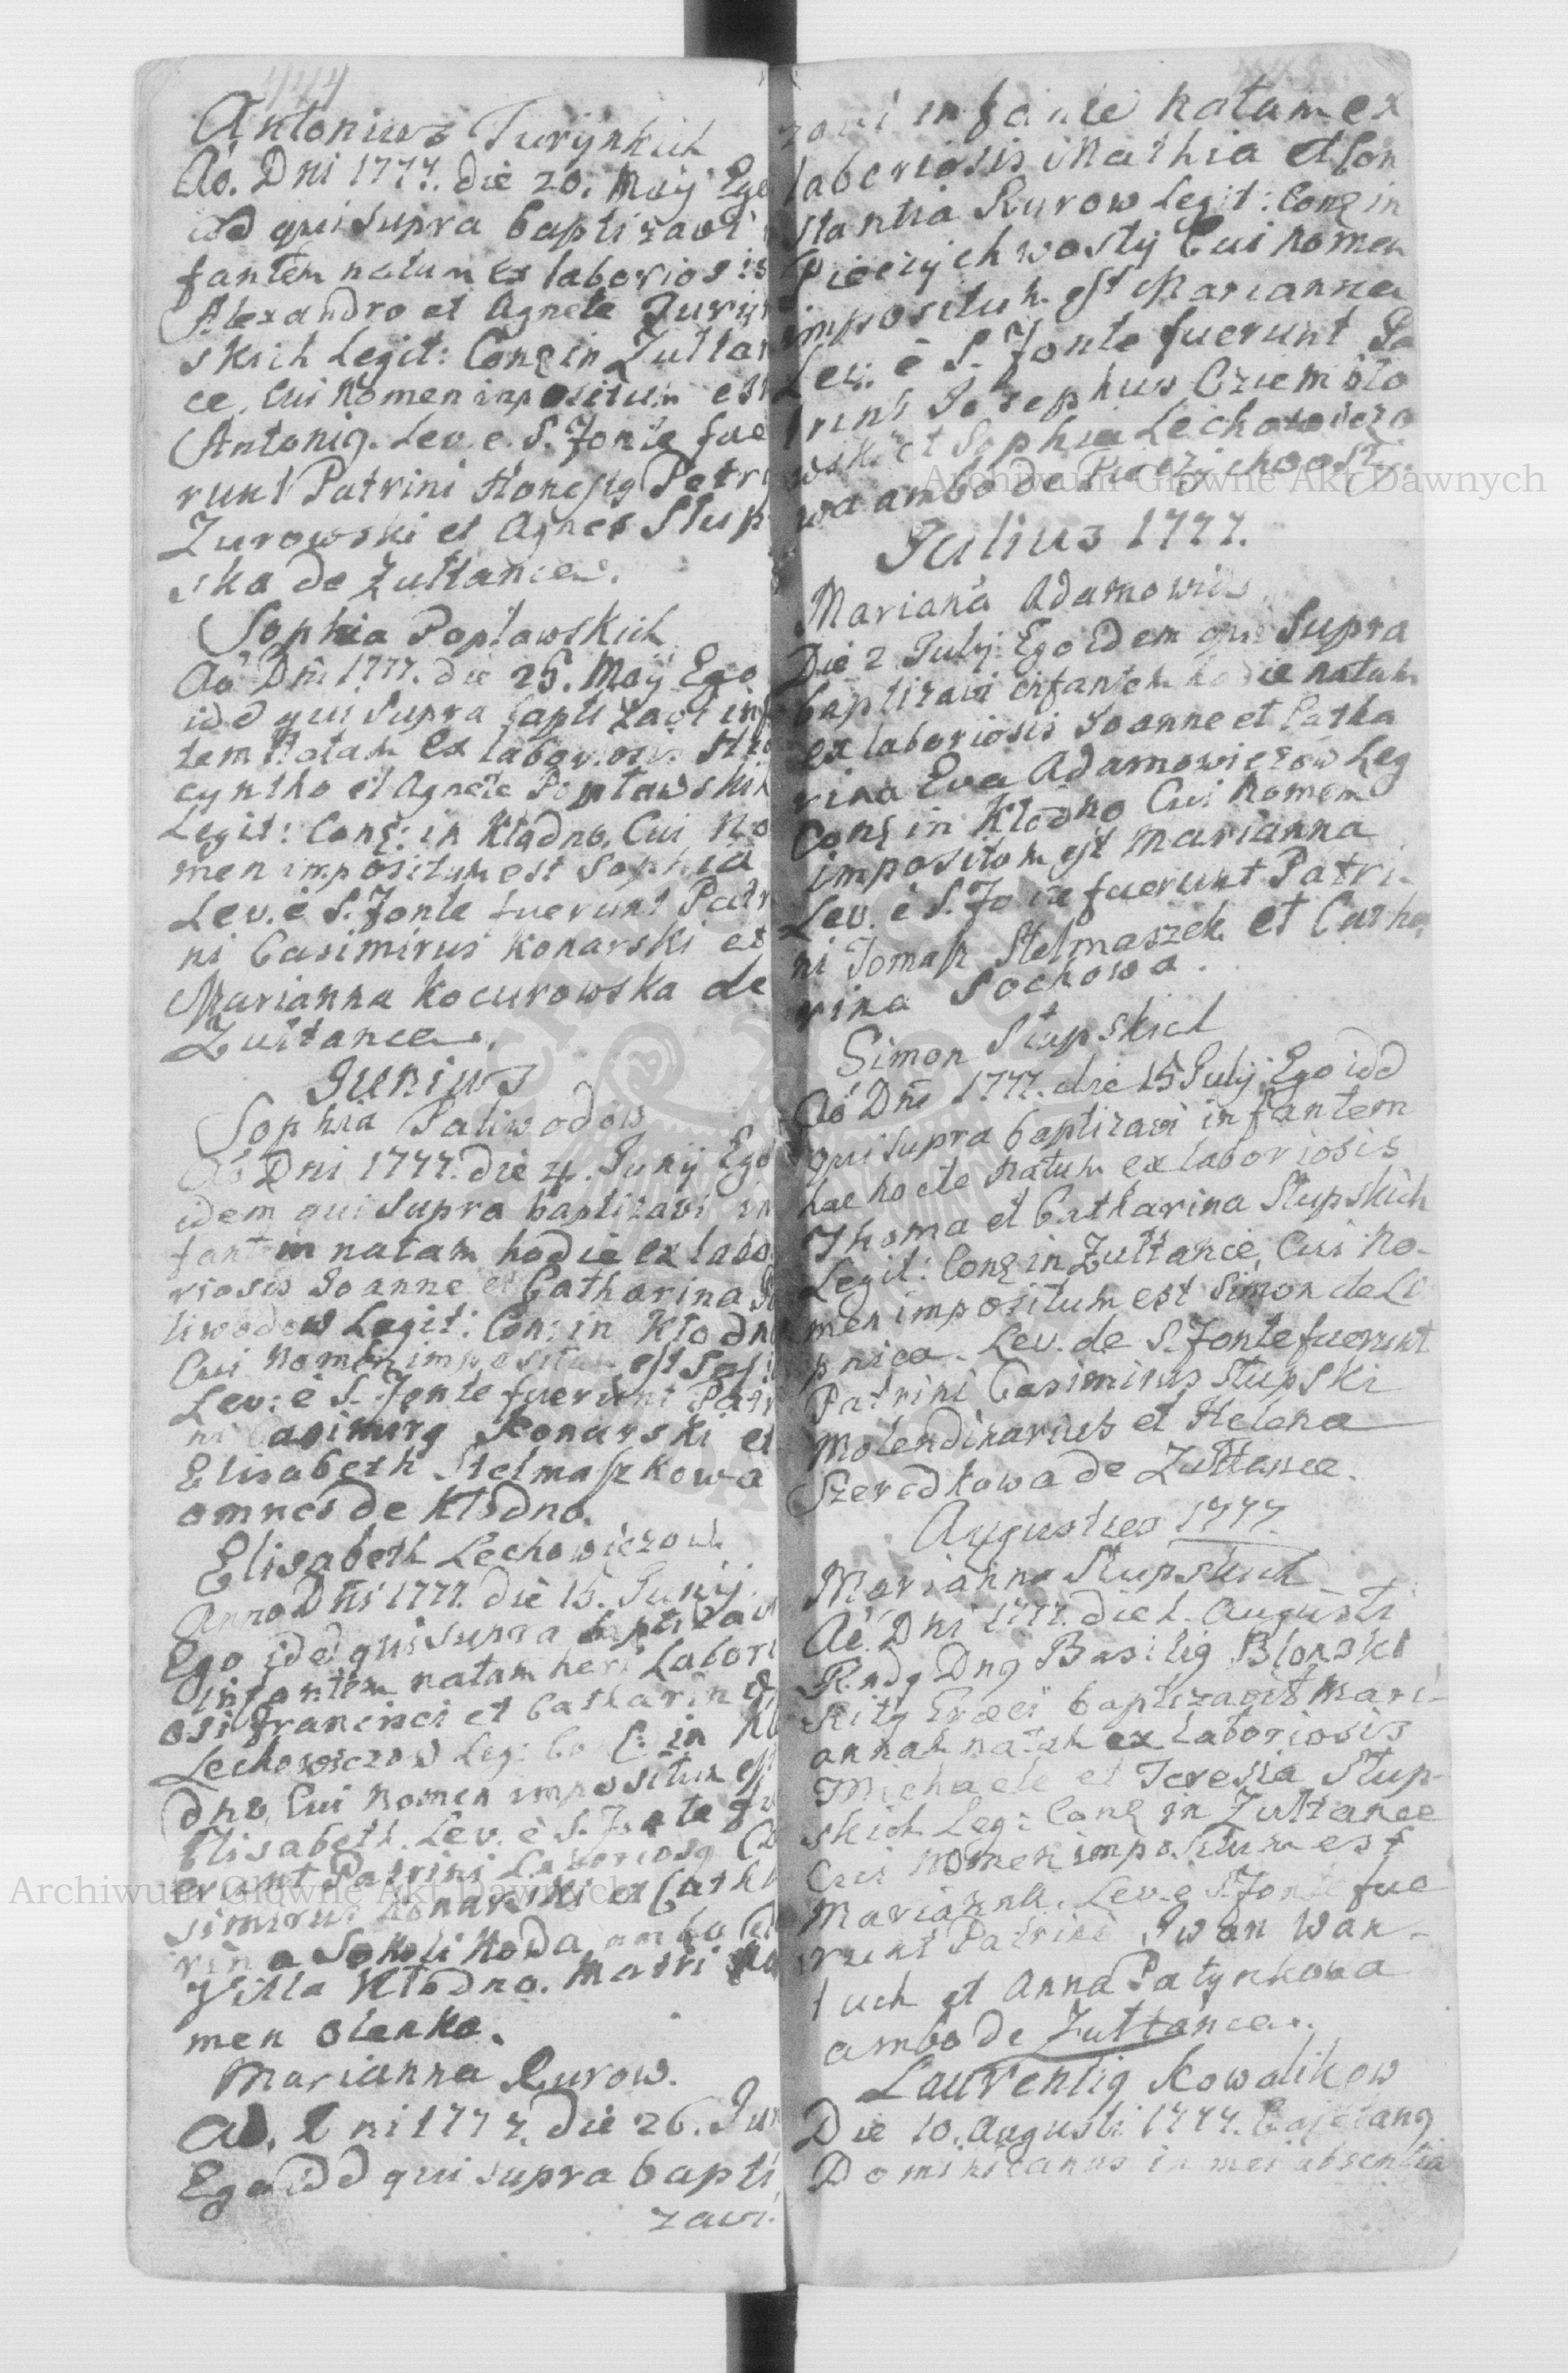 Antonius Turynskich
Ao. Dni 1777. die 20. Maij Ego
idd qui supra baptizavi
fantem natum ex laboriosis
Alexandro et Agnete Turyn
skich Legit: Conj in Zułtan
ce, Cui Nomen impositum est
Antonig. Lev. e. S. Fonte fue
runt Patrini Honestg Petrg
Zurowski et Agnes Słup
ska de Zułtance.
Sophia Popławskich
Ao Dni 1777. die 25. Maij Ego
idd qui supra baptizavi inf
tem Natam ex laboriosis Hia
cyntho et Agnete Popławskich
Legit: Conj: in Kłodno, Cui No
men impositum est Sophia
Lev. è S. Fonte fuerunt Patri
ni Casimirus Konarski et
Marianna Kocurowska de
Zułtance.
Junius
Sophia Paliwodow
Ao Dni 1777. die 4. Junij Ego
idem qui supra baptizavi in
fantem natam hodie ex labo
riosis Joanne et Catharina Pa
liwodow Legit: Conj in Kłodno
Cui Nomen impositum est Soph
Lev: è S. Fonte fuerunt Patri
ni Casimirg Konarski et
Elisabeth Stelmaszkowa
omnes de Kłodno.
Elisabeth Lechowiczow
Anno Dni 1777. die 15. Junij
Ego idd qui supra baptizavi
infantem natam heri Labori
osi Francisci et Catharina
Lechowiczow Leg: Conj: in Kło
dno, Cui Nomen impositum est
Elisabeth. Lev. è S. Fonte fu
erunt Patrini Laboriosg Ca
simirus Konarski et Catha
rina ambo de
Villa Kłodno. Matri No
men Olenka.
Marianna Rurow.
Ao. Dni 1777. die 26. Jun
Ego idd qui supra bapti
zavi.
zavi infante Natam ex
laboriosis Mathia et Con
stantia Rurow Legit: Conj in
Pieczychwosty Cui Nomen
impositum est Marianna
Lev. è S. Fonte fuerunt Pa
trini Josephus Oziembło
wski et Sophia Lechowiczo
wa ambo de Pieczychwosty.
Julius 1777.
Marianna Adamowicz
Die 2 Julij Ego idem qui supra
baptizavi infantem hodie natam
ex laboriosis Joanne et Catha
rina Eva Adamowiczow Leg
Conj in Kłodno Cui Nomem
impositum est Marianna
Lev. è S. Fonte fuerunt Patri
ni Tomasz Stelmaszek et Catha
rina Sochowa.
Simon Słupskich
Ao Dni 1777. die 15 Julij Ego idd
qui supra baptizavi infantem
hac nocte natum ex laboriosis
Thoma et Catharina Słupskich
Legit: Conj in Zułtance, Cui No-
men impositum est Simon de Li
pnica. Lev. de S. Fonte fuerunt
Patrini Casimirus Słupski
Molendinarius et Helena
Szeredkowa de Zułtance.
Augustus 1777.
Marianna Słupskich
Ao. Dni 1777. die 1. Augusti
Rndg Dng Basilig Błonski
Ritg Graeci baptizavit Mari-
annam natam ex laboriosis
Michaele et Teresia Słup-
skich Leg: Conj in Zułtance
Cui Nomen impositum est
Marianna. Lev. è S. Fonte fue
runt Patrini Iwan Wan-
tuch et Anna Patynkowa
ambo de Zułtance.
Laurentig Kowalikow
Die 10. Augusti 1777. Cajetang
Dominicanus in mei absentia
Archiwum Główne Akt Dawnych
Archiwum Główne Akt Dawnych